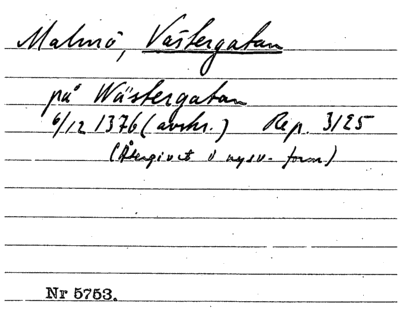 Malmö, Västergatan
på Wästergatan
6/12 1376 (avskr.) Rep. 3125
(Återgivet i nysv. form)
Nr 5753.